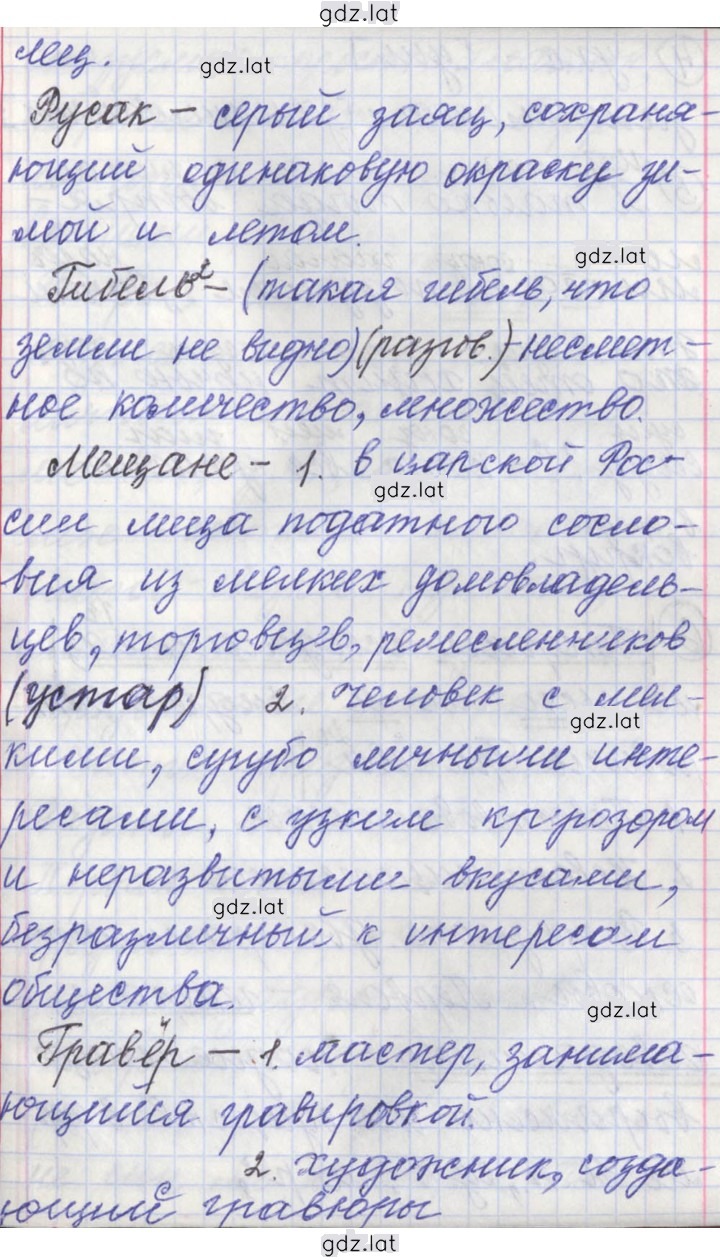 gdz.lat
лец.
gdz.lat
Русак – серый заяц, сохраня-
ющий одинаковую окраску зи-
мой и летом.
gdz.lat
Гибель² – (такая гибель, что
земли не видно) (разгов.) – несмет-
ное количество, множество.
Мещане – 1. в царской Рос-
gdz.lat
сии лица податного сосло-
вия из мелких домовладель-
цев, торговцев, ремесленников
(устар) 2. человек с мел-
gdz.lat
кими, сугубо личными инте-
ресами, с узким кругозором
и неразвитыми вкусами,
gdz.lat
безразличный к интересам
общества.
gdz.lat
Гравёр – 1. мастер, занима-
ющийся гравировкой.
2. художник, созда-
ющий гравюры
gdz.lat